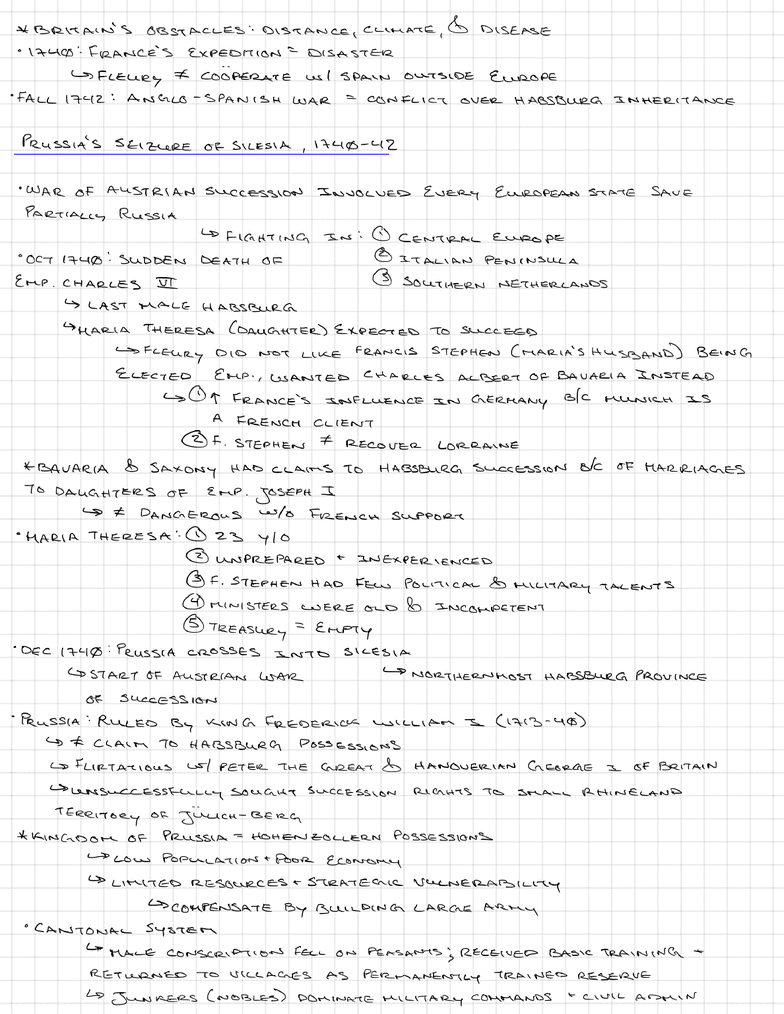 *BRITAIN'S OBSTACLES: DISTANCE, CLIMATE, & DISEASE
• 1740: FRANCE'S EXPEDITION = DISASTER
↳ FLEURY ≠ COÖPERATE W/ SPAIN OUTSIDE EUROPE
• FALL 1742: ANGLO-SPANISH WAR = CONFLICT OVER HABSBURG INHERITANCE
PRUSSIA'S SEIZURE OF SILESIA, 1740-42
• WAR OF AUSTRIAN SUCCESSION INVOLVED EVERY EUROPEAN STATE SAVE
PARTIALLY RUSSIA
↳ FIGHTING IN: ① CENTRAL EUROPE
② ITALIAN PENINSULA
③ SOUTHERN NETHERLANDS
• OCT 1740: SUDDEN DEATH OF
EMP. CHARLES VI
↳ LAST MALE HABSBURG
↳ MARIA THERESA (DAUGHTER) EXPECTED TO SUCCEED
↳ FLEURY DID NOT LIKE FRANCIS STEPHEN (MARIA'S HUSBAND) BEING
ELECTED EMP., WANTED CHARLES ALBERT OF BAVARIA INSTEAD
↳ ① ↑ FRANCE'S INFLUENCE IN GERMANY B/C MUNICH IS
A FRENCH CLIENT
② F. STEPHEN ≠ RECOVER LORRAINE
*BAVARIA & SAXONY HAD CLAIMS TO HABSBURG SUCCESSION B/C OF MARRIAGES
TO DAUGHTERS OF EMP. JOSEPH I
↳ ≠ DANGEROUS W/O FRENCH SUPPORT
• MARIA THERESA: ① 23 Y/O
② UNPREPARED + INEXPERIENCED
③ F. STEPHEN HAD FEW POLITICAL & MILITARY TALENTS
④ MINISTERS WERE OLD & INCOMPETENT
⑤ TREASURY = EMPTY
• DEC 1740: PRUSSIA CROSSES INTO SILESIA
↳ START OF AUSTRIAN WAR ↳ NORTHERNMOST HABSBURG PROVINCE
OF SUCCESSION
• PRUSSIA: RULED BY KING FREDERICK WILLIAM I (1713-40)
↳ ≠ CLAIM TO HABSBURG POSSESSIONS
↳ FLIRTATIOUS W/ PETER THE GREAT & HANOVERIAN GEORGE I OF BRITAIN
↳ UNSUCCESSFULLY SOUGHT SUCCESSION RIGHTS TO SMALL RHINELAND
TERRITORY OF JÜLICH-BERG
*KINGDOM OF PRUSSIA = HOHENZOLLERN POSSESSIONS
↳ LOW POPULATION + POOR ECONOMY
↳ LIMITED RESOURCES + STRATEGIC VULNERABILITY
↳ COMPENSATE BY BUILDING LARGE ARMY
• CANTONAL SYSTEM
↳ MALE CONSCRIPTION FELL ON PEASANTS; RECEIVED BASIC TRAINING +
RETURNED TO VILLAGES AS PERMANENTLY TRAINED RESERVE
↳ JUNKERS (NOBLES) DOMINATE MILITARY COMMANDS + CIVIL ADMIN